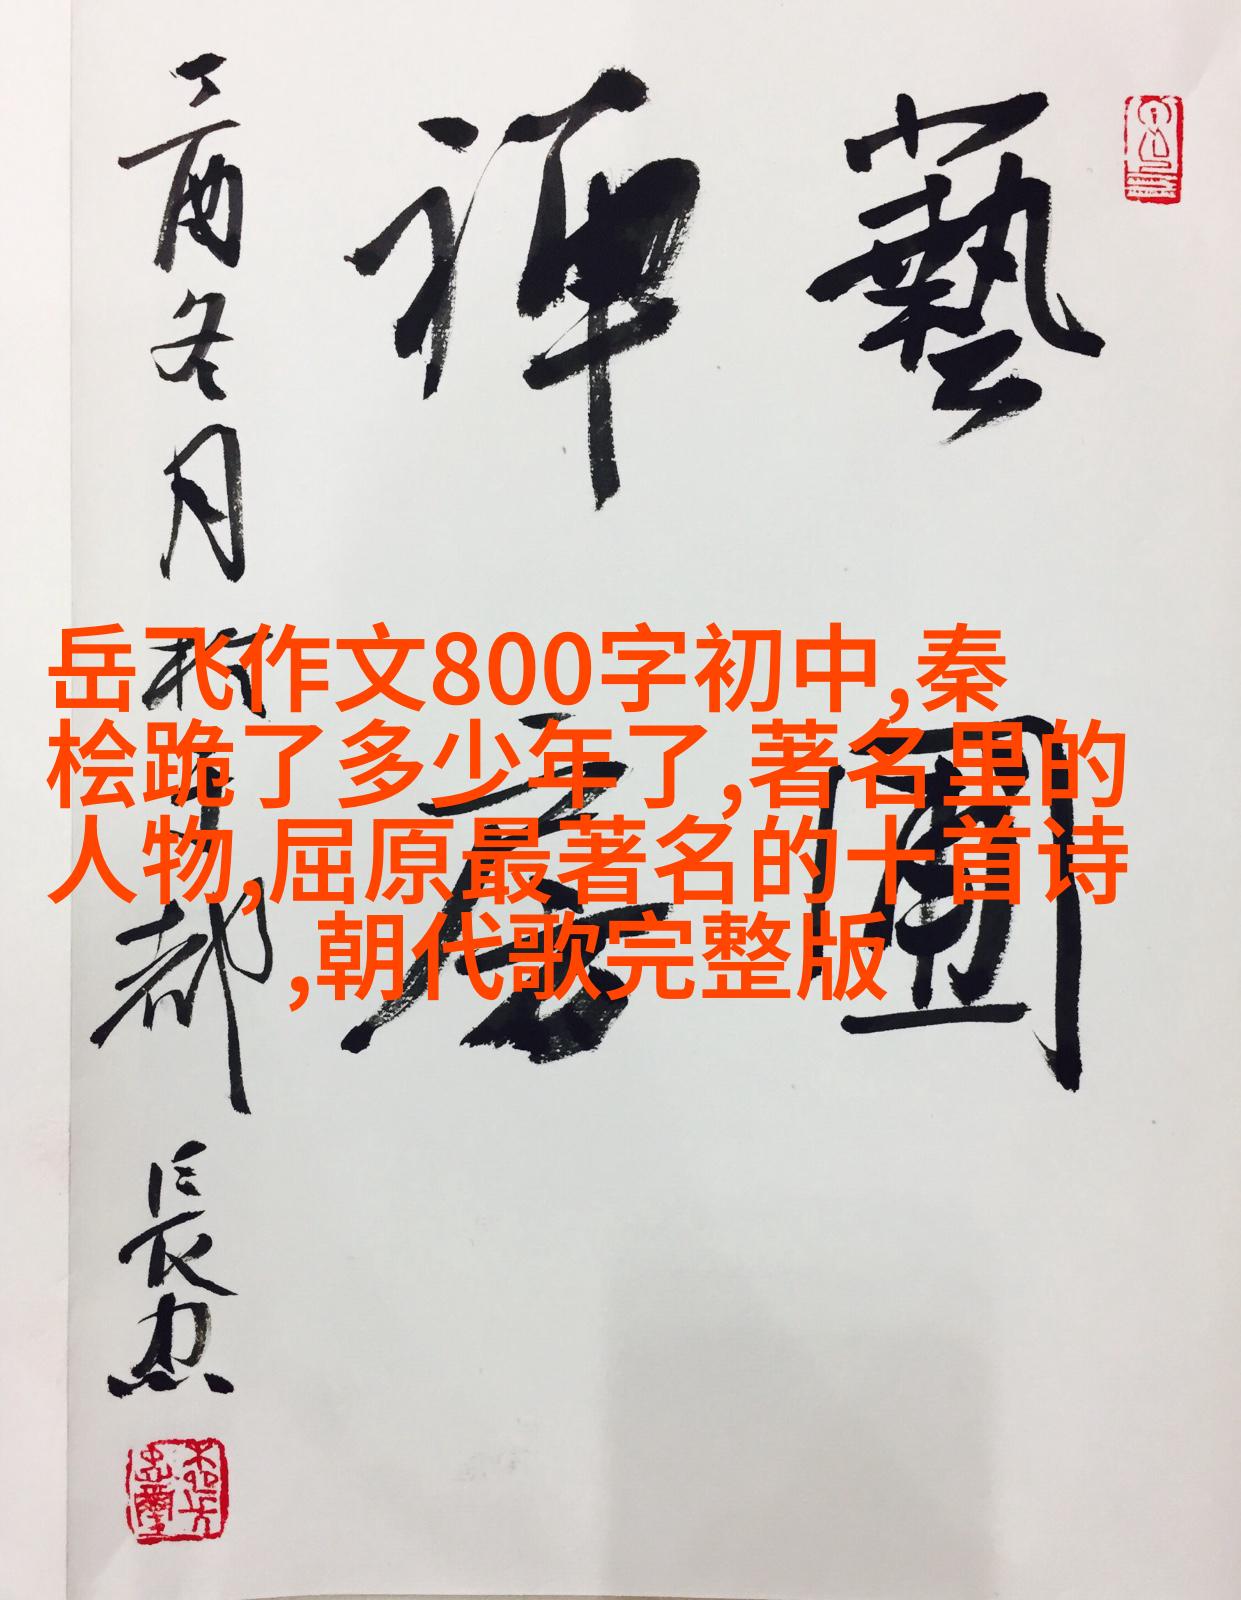 藝圃
禪店
丁酉冬月於
都
長忠
岳飞作文800字初中,秦
桧跪了多少年了,著名里的
人物,屈原最著名的十首诗
,朝代歌完整版